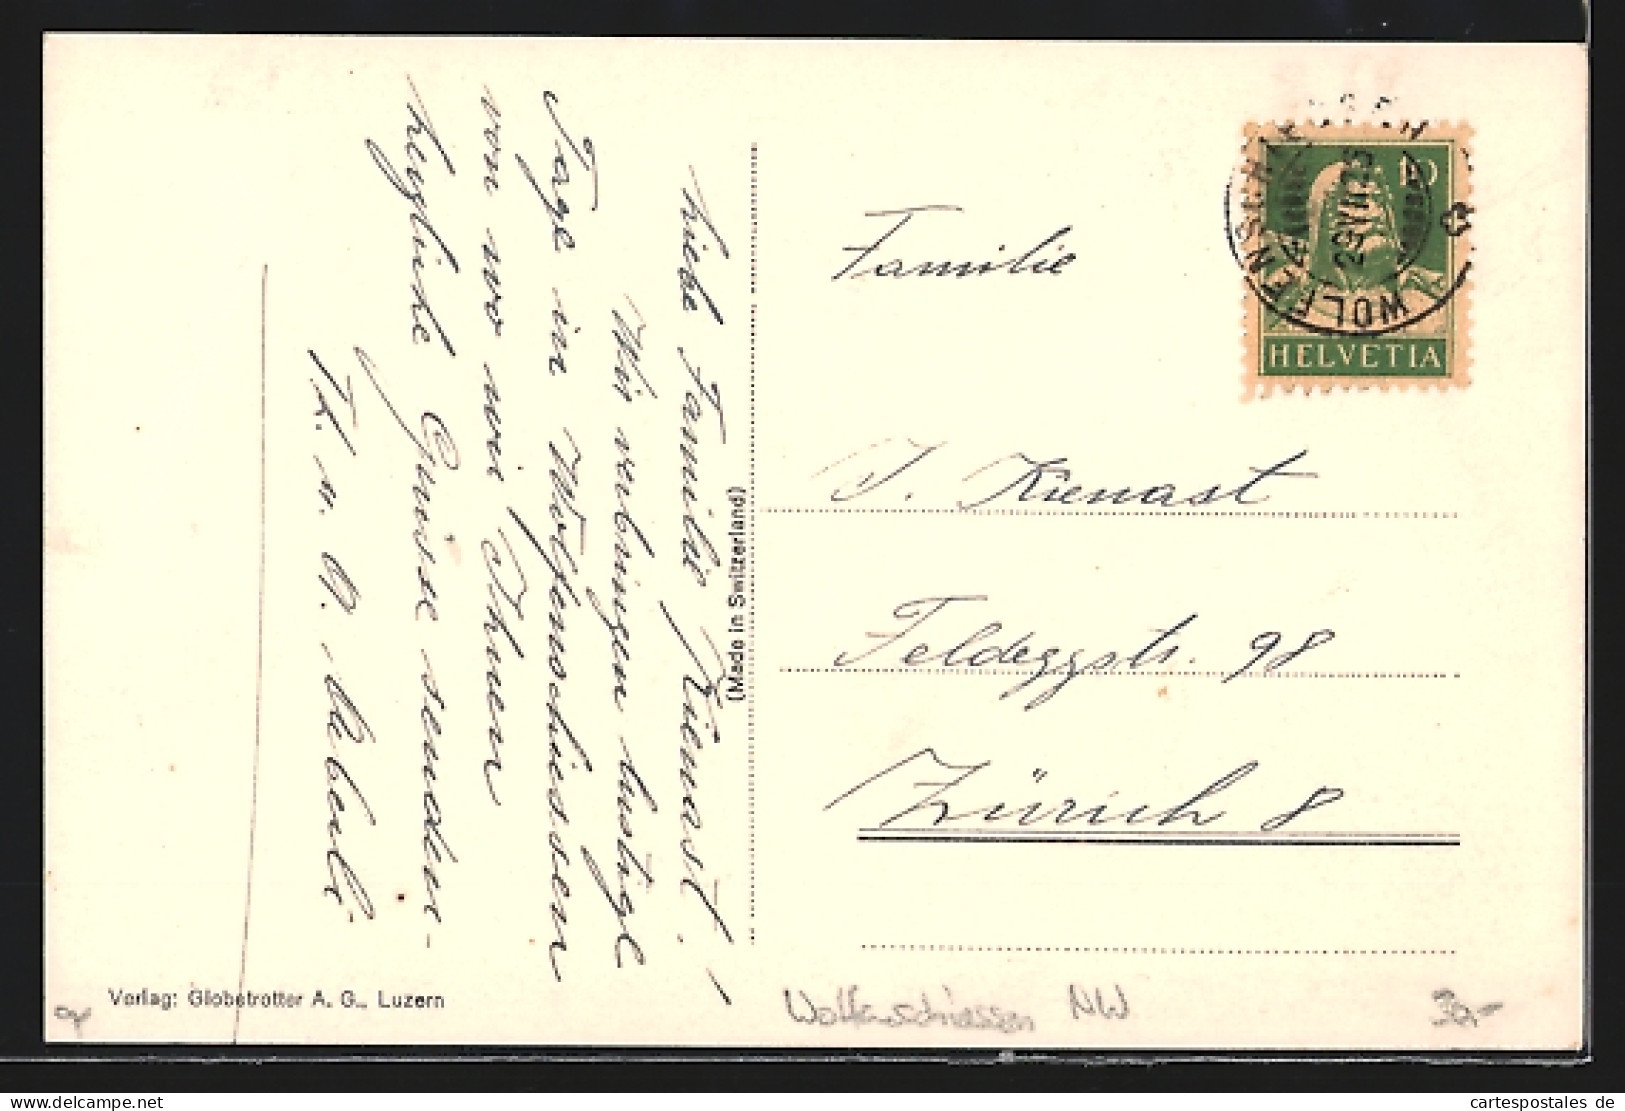 Liebe Familie Kienast!
Wir verbringen lustige
Tage in Wolfenschiessen
von wo wir Ihnen
herzliche Grüsse senden
Familie
J. Kienast
Feldeggstr. 98
Zürich 8
10
HELVETIA
WOLFENSCHIESSEN
(Made in Switzerland)
Verlag: Globetrotter A. G., Luzern
Wolfenschiessen NW
cartespostales de